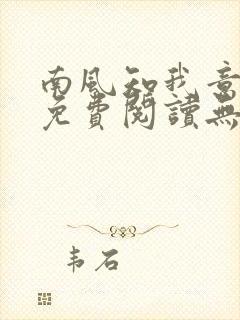 南風知我意
免費閱讀無
韦石